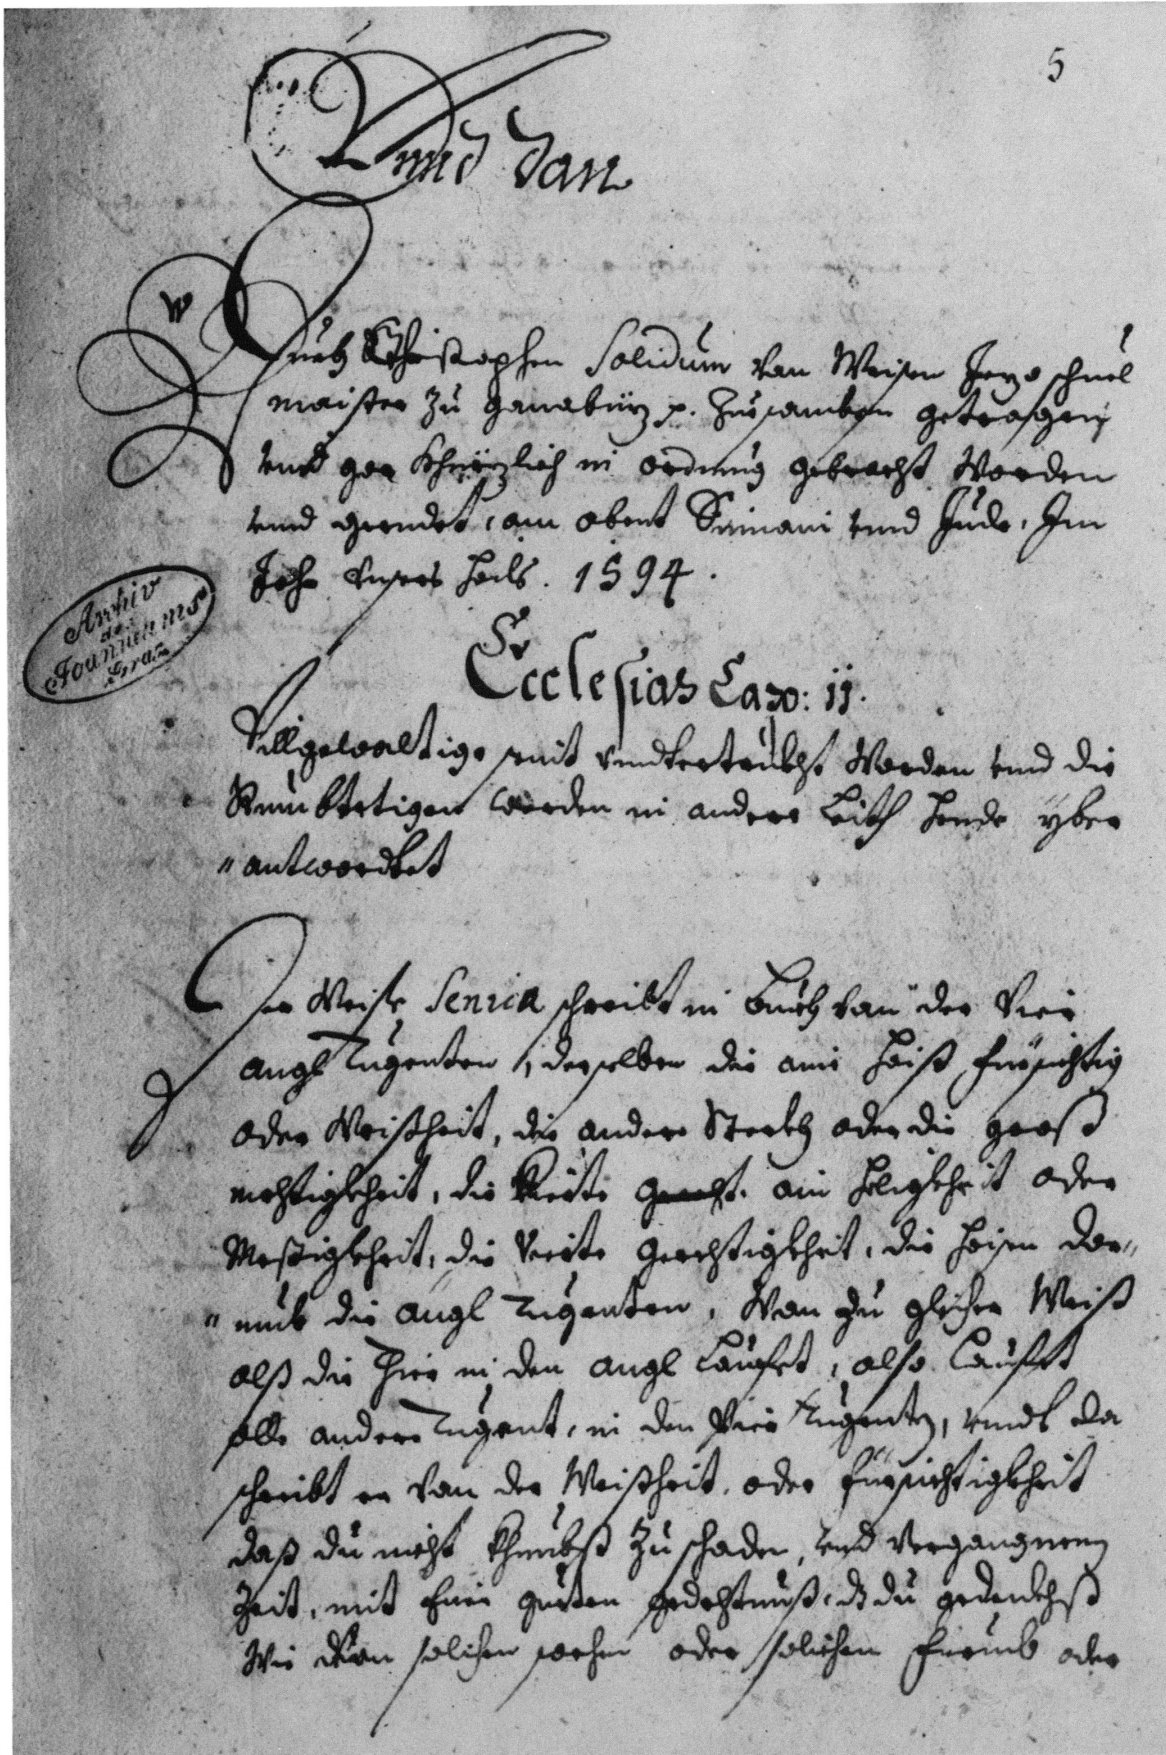 5
Vnnd dan
Durch Christophen Solidum von Meisen Jezo schuel
maister zu Gonabiz p. Zusamben getragen
vnnd gar khürzlich in ordnung gebracht worden
vnnd geendet, am abent Simani vnnd Jude, Im
Jahr vnsers Heils. 1594.
Archiv
des
Joanneums
Graz
Ecclesias Cap: ij.
Vill gewaltige seint vndtertrükht worden vnnd die
werden in andere Leith hende yber
"antwordtet
Der Weise Senica schreibt in buech von der Vier
angl Tugenten, derselben die ain heist fürsichtig
oder Weißheit, die andere Sterkh oder die groß
mehtigkheit, die dritte ain oder
Messigkheit, die Vierte gerechtigkheit, die heisen dar"
"umb die angl Tugenten, Wan zu gleicher Weiß
alß die Thier in den angl Lauffet, also Laufft
alle andere Tugent, in den Vier Tugenten, vnndt da
schreibt er von der Weißheit, oder fürsichtigkheit
daß du nicht khumbst zu schaden, vnd vergangnen
Zeit, mit guetten gedechtnuß, dz du gedenkhst
Wie von solichen sachen oder solichen oder